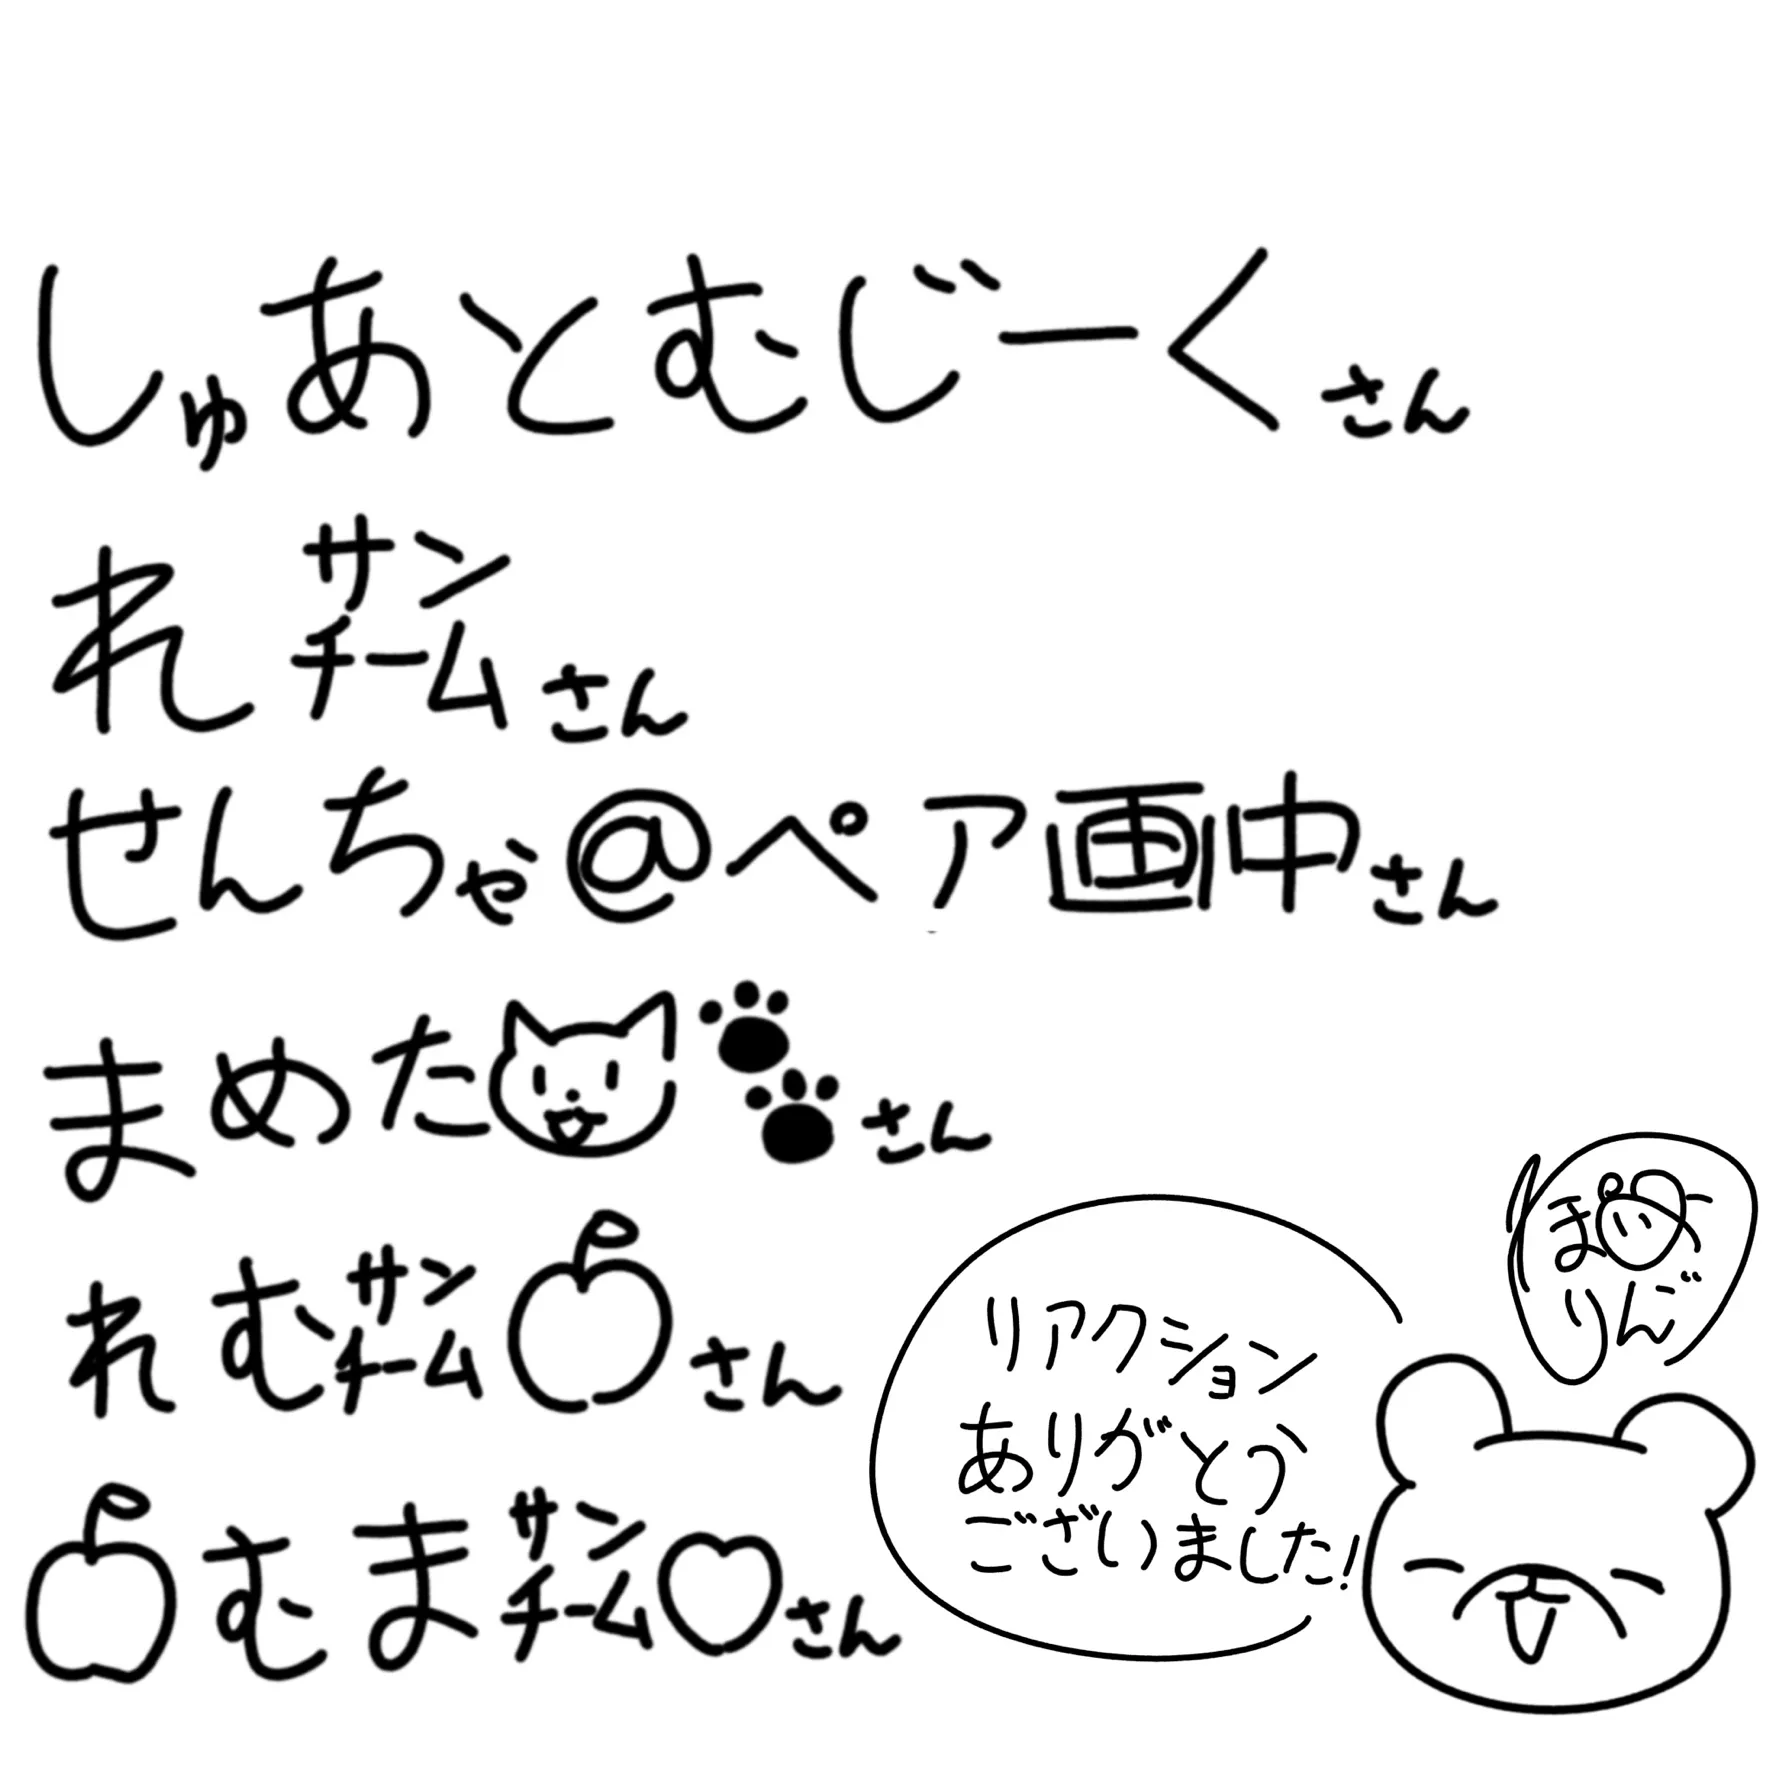 しゅあとむじーくさん
れサンチームさん
せんちゃ@ペア画中さん
まめたさん
れむサンチームさん
むまサンチームさん
リアクション
ありがとう
ございました!
ま
りんご